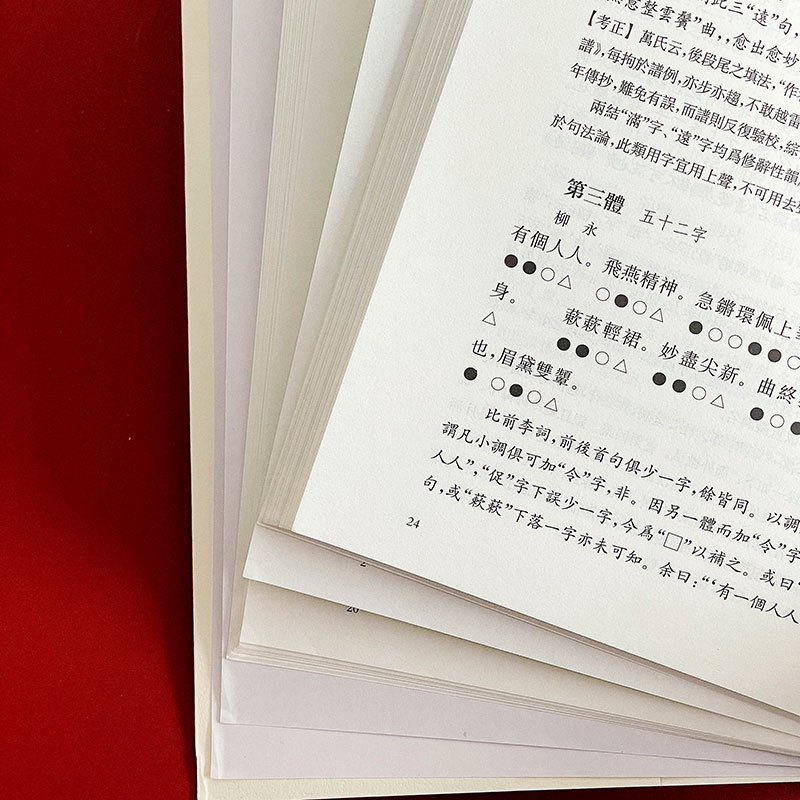 此三“遠”句，
意整雲鬢”曲，，愈出愈妙
【考正】萬氏云，後段尾之填法，“作
譜》，每拘於譜例，亦步亦趨，不敢越雷
年傳抄，難免有誤，而譜則反復驗校，綜
兩結“滿”字、“遠”字均爲修辭性韻
於句法論，此類用字宜用上聲，不可用去
第三體 五十二字
柳永
有個人人。飛燕精神。急鏘環佩上
●●○△ ○●○△ ●○○●●○
身。 蔌蔌輕裙。妙盡尖新。曲終
△ ●●○△ ●●○△ ●○
也，眉黛雙顰。
● ○●○△
比前李詞，前後首句俱少一字，餘皆同。以調
謂凡小調俱可加“令”字，非。因另一體而加“令”字
人人”，“促”字下誤少一字，今爲“□”以補之。或曰
句，或“蔌蔌”下落一字亦未可知。余曰：“‘有一個人人
24
2
26